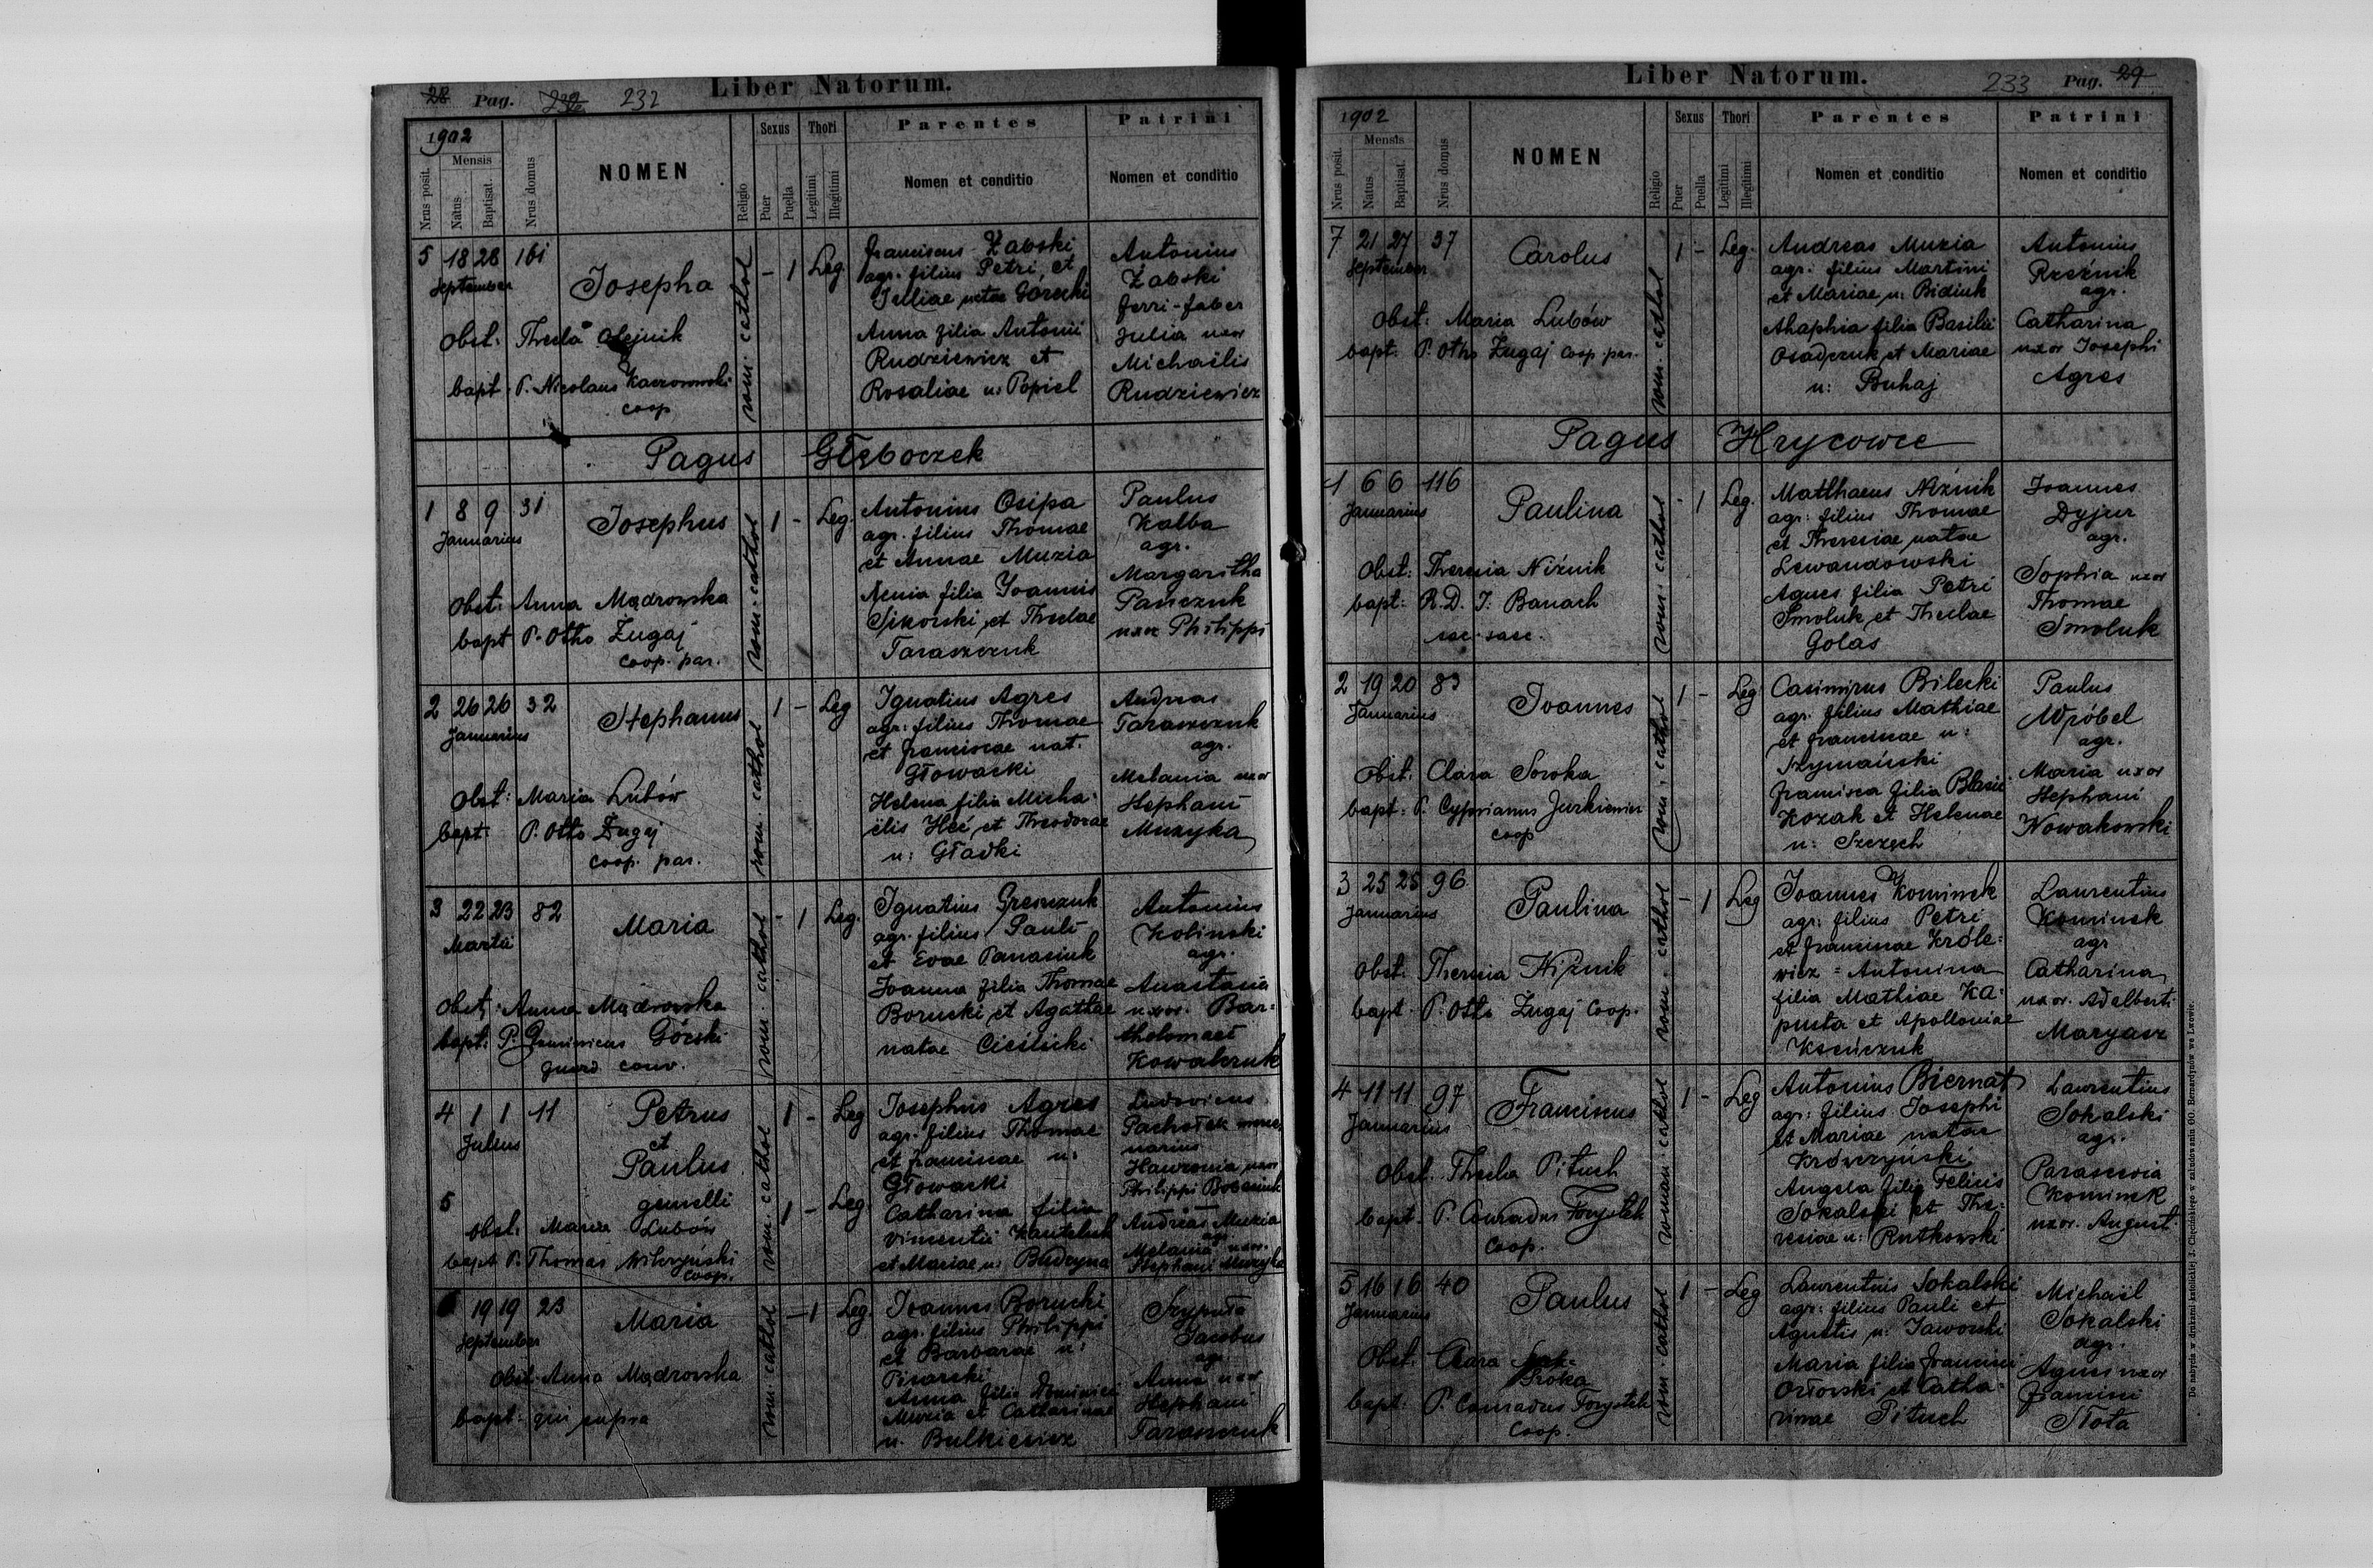 28 Pag. 232
Liber Natorum.
1902
Mensis
Nrus posit.
Natus.
Baptisat.
Nrus domus
NOMEN
Religio
Sexus
Puer
Puella
Thori
Legitimi
Illegitimi
Parentes
Nomen et conditio
Patrini
Nomen et conditio
5 18 28 161
September
Josepha
rom. cathol
- 1 Leg.
Franciscus Żabski
agr. filius Petri, et
Juliae natae Górecki
Anna filia Antonii
Rudziewicz et
Rosaliae n: Popiel
Antonius
Żabski
ferri-faber
Julia uxor
Michaëlis
Rudziewicz
Obst: Thecla Olejnik
bapt: P. Nicolaus Kaczorowski
coop
Pagus Głęboczek
1 8 9 31
Januarius
Josephus
rom. cathol
1 - Leg.
Antonius Osipa
agr. filius Thomae
et Annae Muzia
Xenia filia Joannis
Sikorski, et Theclae
Taraszczuk
Paulus
Kalba
agr.
Margaritha
Pańczuk
uxor Philippi
Obst: Anna Mądrowska
bapt P. Otho Żugaj
coop. par.
2 26 26 32
Januarius
Stephanus
rom. cathol
1 - Leg
Ignatius Agres
agr: filius Thomae
et Franciscae nat.
Głowacki
Helena filia Micha-
ëlis Heć et Theodorae
n: Gładki
Andreas
Taraszczuk
agr.
Melania uxor
Stephani
Muzyka
Obst: Maria Lubów
bapt: P. Otto Żugaj
coop. par.
3 22 23 82
Martii
Maria
rom. cathol
- 1 Leg.
Ignatius Gresczuk
agr. filius Pauli
et Evae Panasiuk
Joanna filia Thomae
Borucki, et Agathae
natae Cieślicki
Antonius
Kolinski
agr.
Anastasia
uxor. Bar-
tholomaei
Kowalczuk
Obst: Anna Mądrowska
bapt: P. Dominicus Górski
guard. conv.
4 1 1 11
Julius
Petrus
et
Paulus
gemelli
rom. cathol
1 - Leg
Josephus Agres
agr. filius Thomae
et Franciscae n:
Głowacki
Catharina filia
Vincentii
et Mariae n:
Ludovicus
Pachołek
Philippi
Andreas Muzia
agr.
Melania uxor.
Stephani Muzyka
5 1 - Leg.
Obst: Maria Lubów
bapt P. Thomas Wilczyński
coop.
6 19 19 23
September
Maria
rom. cathol
- 1 Leg.
Joannes Borucki
agr. filius Philippi
et Barbarae n:
Pisarski
Anna filia Dominici
Muzia et Catharinae
n. Bulkiewicz
Szypuła
Jacobus
agr.
Anna uxor
Stephani
Taraszczuk
Obst: Anna Mądrowska
bapt: qui supra
Liber Natorum.
233 Pag. 29
1902
Mensis
Nrus posit.
Natus.
Baptisat.
Nrus domus
NOMEN
Religio
Sexus
Puer
Puella
Thori
Legitimi
Illegitimi
Parentes
Nomen et conditio
Patrini
Nomen et conditio
7 21 27 37
September
Carolus
rom. cathol
1 - Leg.
Andreas Muzia
agr. filius Martini
et Mariae n: Bidiuk
Ahaphia filia Basilii
Osadczuk et Mariae
n: Buhaj
Antonius
Rzeźnik
agr.
Catharina
uxor Josephi
Agres
Obst: Maria Lubów
bapt: P. Otho Żugaj coop par.
Pagus Hrycowce
1 6 6 116
Januarius
Paulina
rom. cathol
- 1 Leg.
Matthaeus Niżnik
agr: filius Thomae
et Theresiae natae
Lewandowski
Agnes filia Petri
Smoluk et Theclae
Golas
Joannes
Dyjur
agr.
Sophia uxor
Thomae
Smoluk
Obst: Theresia Niżnik
bapt: R.D. J. Banach
2 19 20 83
Januarius
Joannes
rom. cathol
1 - Leg
Casimirus Bilecki
agr. filius Mathiae
et Franciscae n:
Szymański
Francisca filia Blasii
Kozak et Helenae
n: Szczęch
Paulus
Wróbel
agr.
Maria uxor
Stephani
Nowakowski
Obst: Clara Soroka
bapt: P. Cyprianus Jurkiewicz
coop
3 25 25 96
Januarius
Paulina
rom. cathol
- 1 Leg
Joannes Kominek
agr: filius Petri
et Franciscae Króle-
wicz = Antonina
filia Mathiae Ka-
pusta et Apolloniae
Kseńczuk
Laurentius
Kominek
agr
Catharina
uxor. Adalberti
Maryasz
Obst: Theresia Niżnik
bapt: P. Otto Żugaj Coop.
4 11 11 97
Januarius
Franciscus
roman. cathol
1 - Leg
Antonius Biernat
agr: filius Josephi
et Mariae natae
Krówczyński
Angela filia Felicis
Sokalski et The-
resiae n: Rutkowski
Laurentius
Sokalski
agr.
Parascevia
Kominek
uxor. August.
Obst. Thecla Pituch
bapt. P. Conradus Forystek
Coop.
5 16 16 40
Januarius
Paulus
rom. cathol
1 - Leg
Laurentius Sokalski
agr: filius Pauli et
Agnetis n: Jaworski
Maria filia Francisci
Orłowski et Catha-
rinae Pituch
Michaël
Sokalski
agr.
Agnes uxor
Francisci
Słota
Obst. Clara
Sroka
bapt: P. Conradus Forystek
Coop.
Do nabycia w drukarni katolickiej J. Chęcińskiego w zabudowaniu OO. Bernardynów we Lwowie.